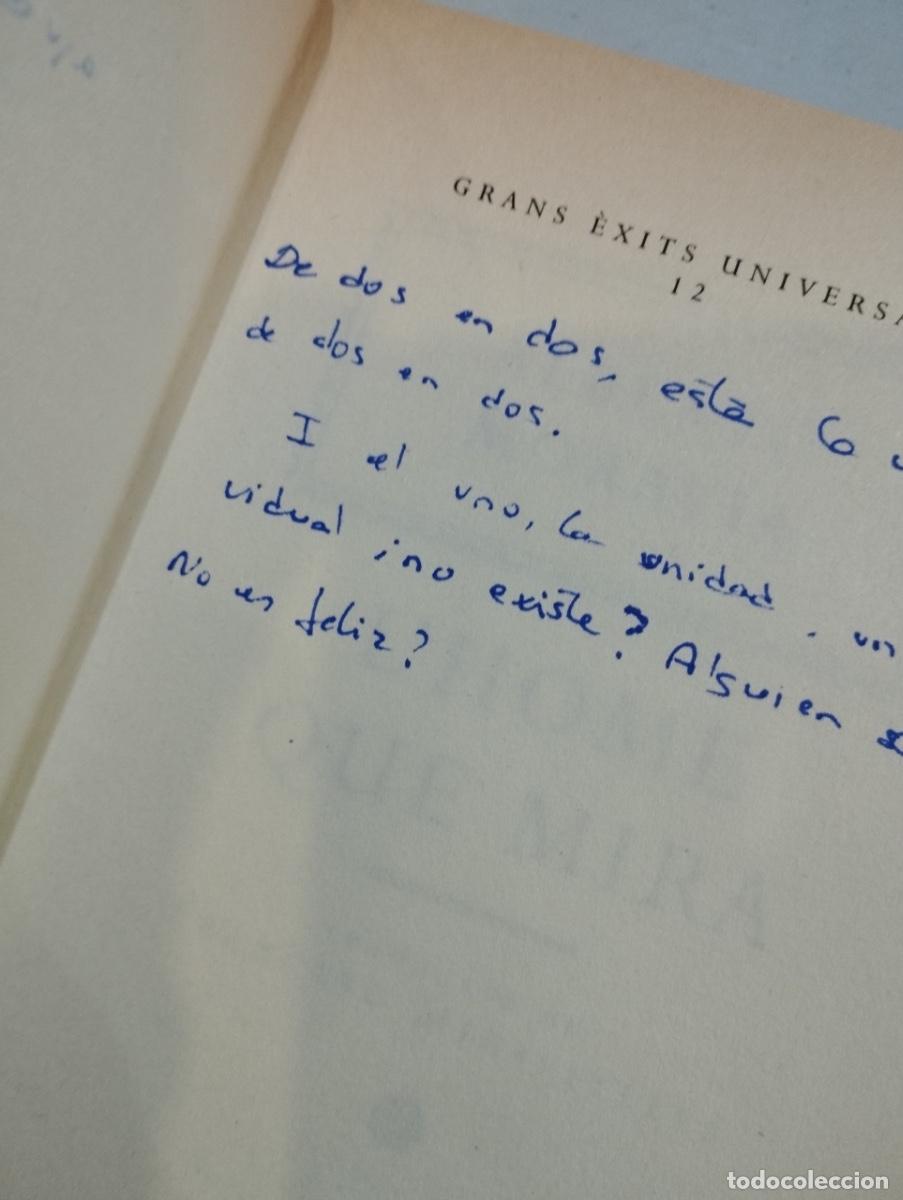 GRANS ÈXITS UNIVERSA
12
De dos en dos, está
de dos en dos.
I el uno, la unidad
vidual ¡no existe? Alguien
No es feliz?
QUE MIRA
todocoleccion